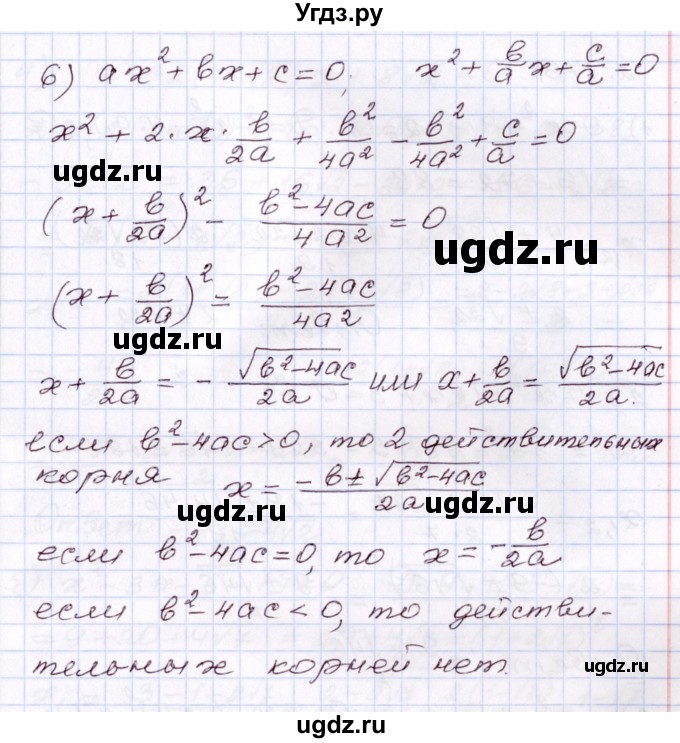 Угдз.ру
6) ax² + bx + c = 0, x² + b/a x + c/a = 0
x² + 2·x·b/2a + b²/4a² - b²/4a² + c/a = 0
ugdz.ru
(x + b/2a)² - b²-4ac/4a² = 0
ugdz.ru
(x + b/2a)² = b²-4ac/4a²
ugdz.ru
x + b/2a = - √b²-4ac/2a или x + b/2a = √b²-4ac/2a.
если b²-4ac>0, то 2 действительных
корня x = -b±√b²-4ac/2a
ugdz.ru ugdz.ru
если b²-4ac=0, то x = -b/2a
если b²-4ac<0, то действи-
тельных корней нет.
ugdz.ru
ugdz.ru